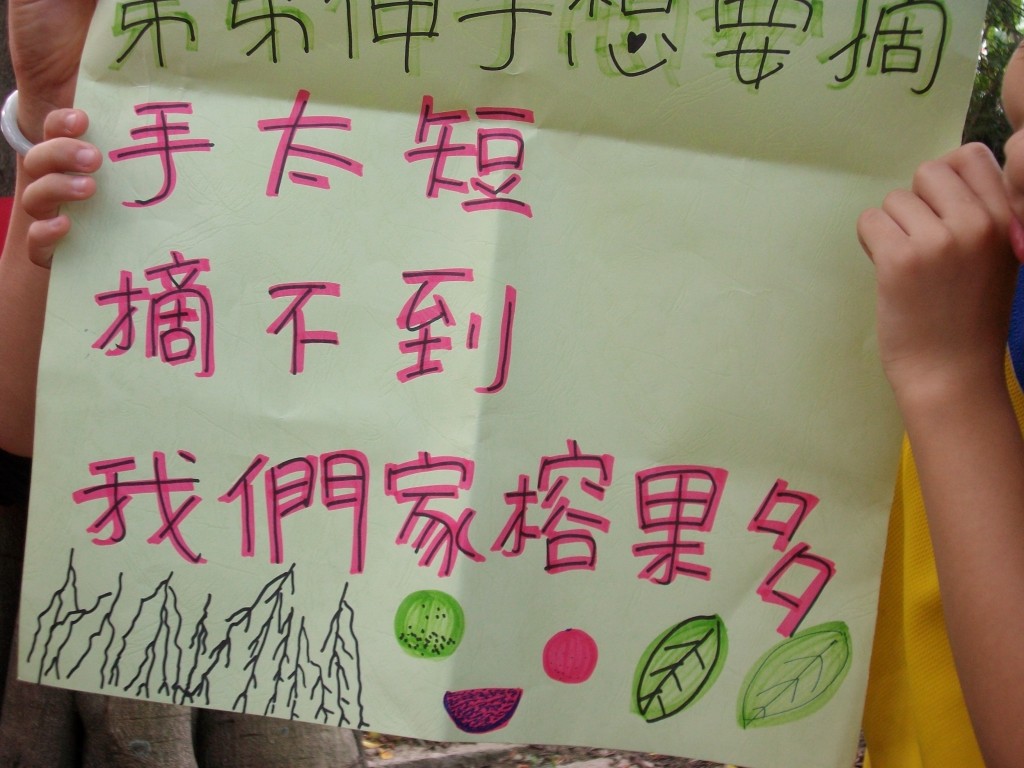 弟弟伸手想要摘
手太短
摘不到
我們家榕果多